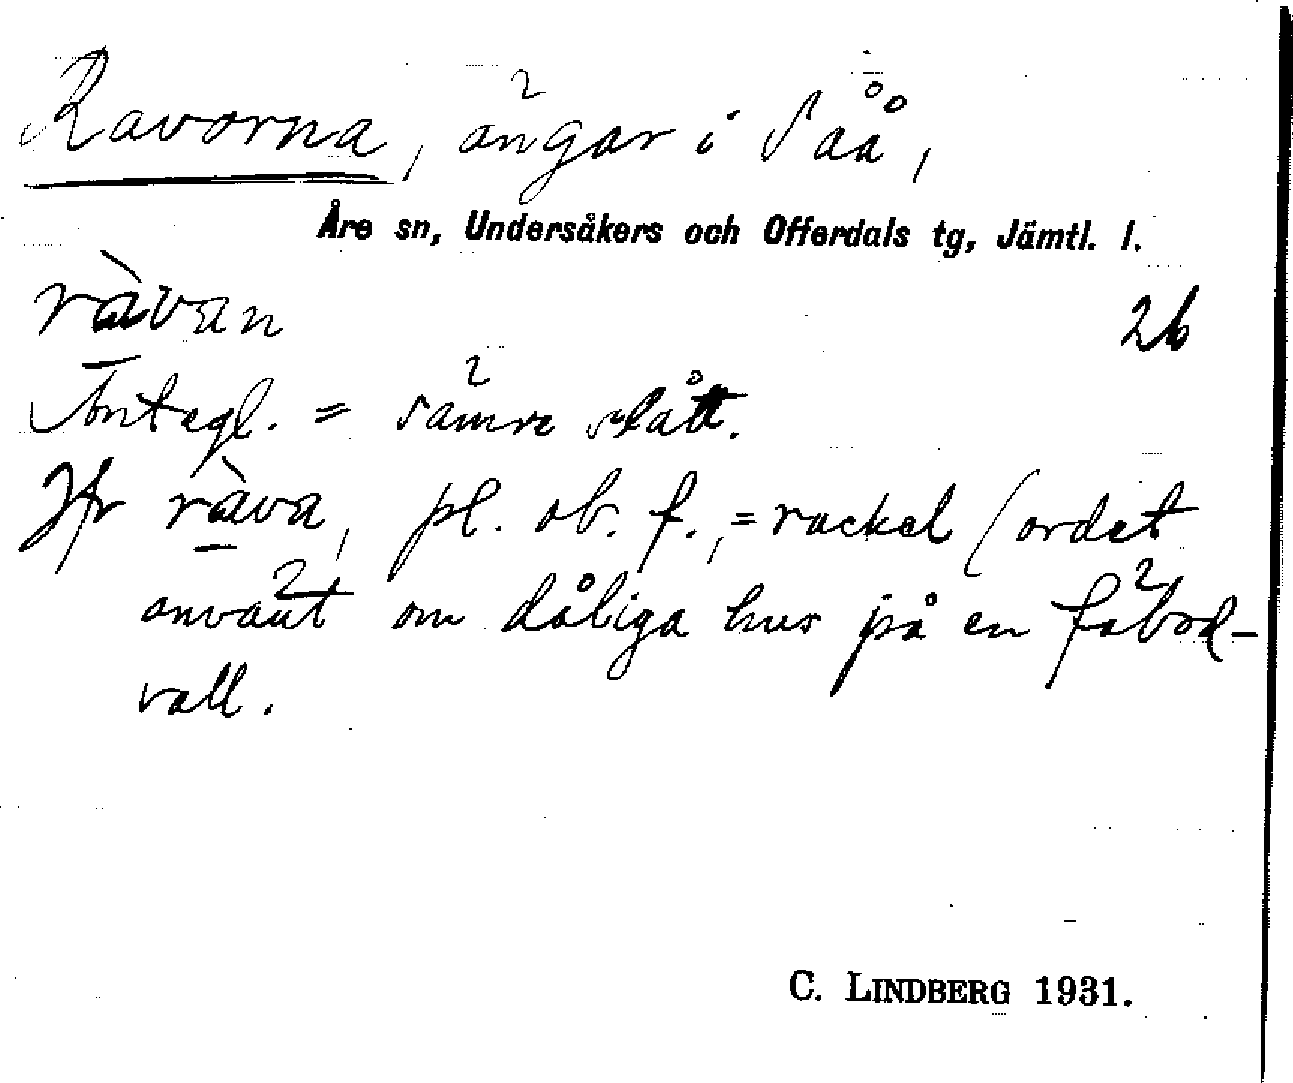 Ravorna, ängar i Såå,
Åre sn, Undersåkers och Offerdals tg, Jämtl. l.
ràvan
26
Antagl. = sämre slått.
Jfr ràva, pl. ob. f., = rackel (ordet
använt om dåliga hus på en fäbod-
vall.
C. LINDBERG 1931.